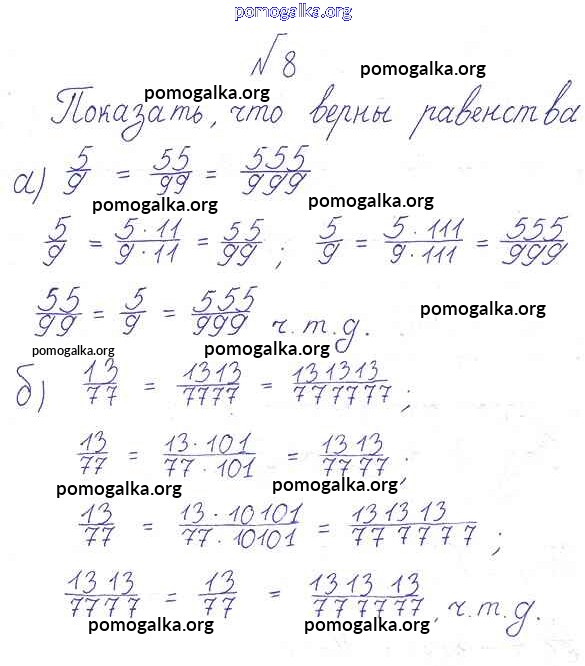 pomogalka.org
№ 8
pomogalka.org pomogalka.org
Показать, что верны равенства
а) 5/9 = 55/99 = 555/999
pomogalka.org pomogalka.org
5/9 = 5·11/9·11 = 55/99 ; 5/9 = 5·111/9·111 = 555/999
55/99 = 5/9 = 555/999 ч.т.д.
pomogalka.org
pomogalka.org pomogalka.org
б) 13/77 = 1313/7777 = 131313/777777 ;
13/77 = 13·101/77·101 = 1313/7777 ;
pomogalka.org pomogalka.org
13/77 = 13·10101/77·10101 = 131313/777777 ;
1313/7777 = 13/77 = 131313/777777 , ч.т.д.
pomogalka.org pomogalka.org